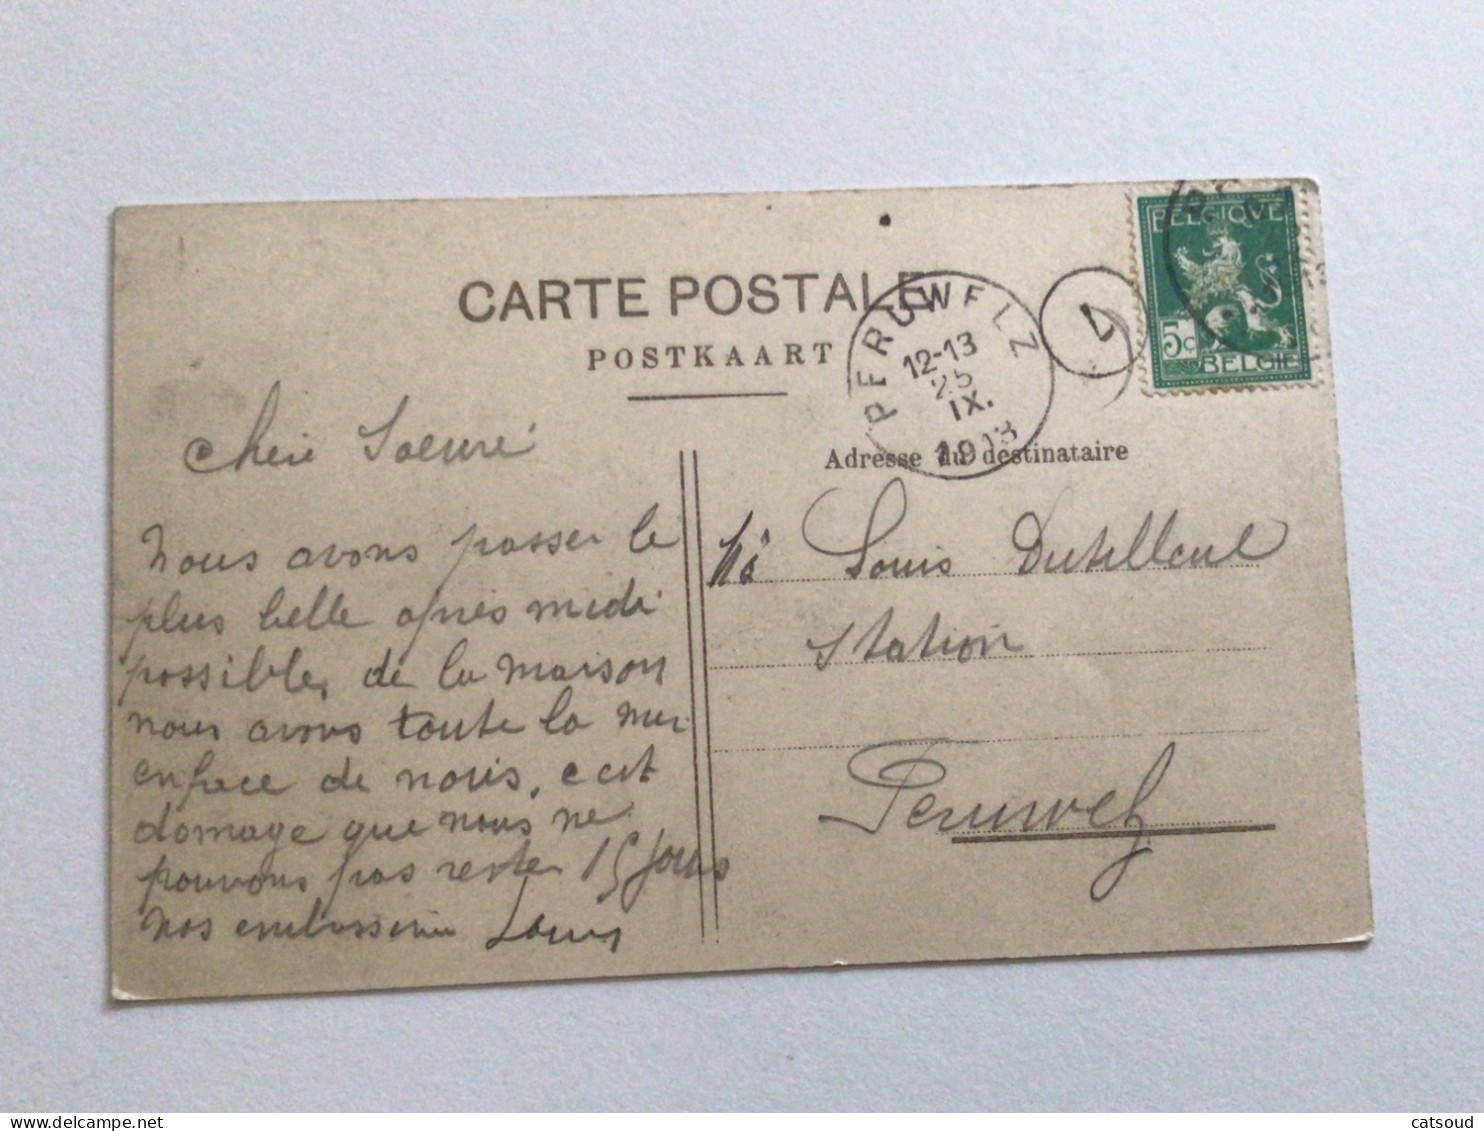 CARTE POSTALE
POSTKAART
PERUWELZ
12-13
25
IX.
1913
4
BELGIQUE
5c
BELGIE
Adresse du destinataire
Chère Soeure
Nous avons passer le
plus belle après midi
possible, de la maison
nous avons toute la mer
enface de nous, c'est
domage que nous ne
pouvons pas rester 15 jours
Nos embasserin Louis
Louis Dutilleul
Station
Peruwelz
catsoud